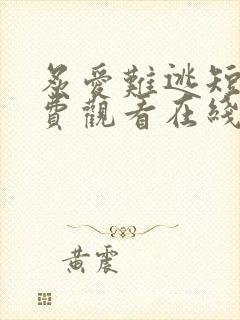 惹愛難逃短
費觀看在綫
黃震